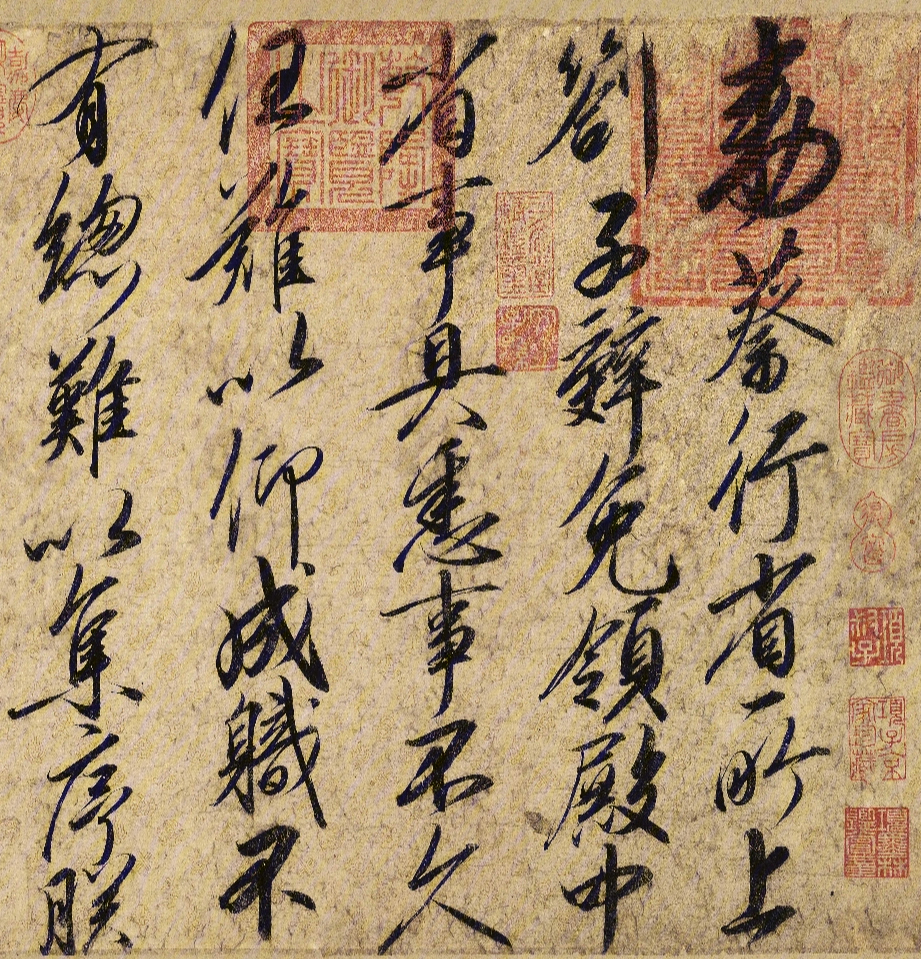 勅蔡行省所上
劄子辭免領殿中
省事具悉事不久
任難以仰成職不
有總難以集序朕